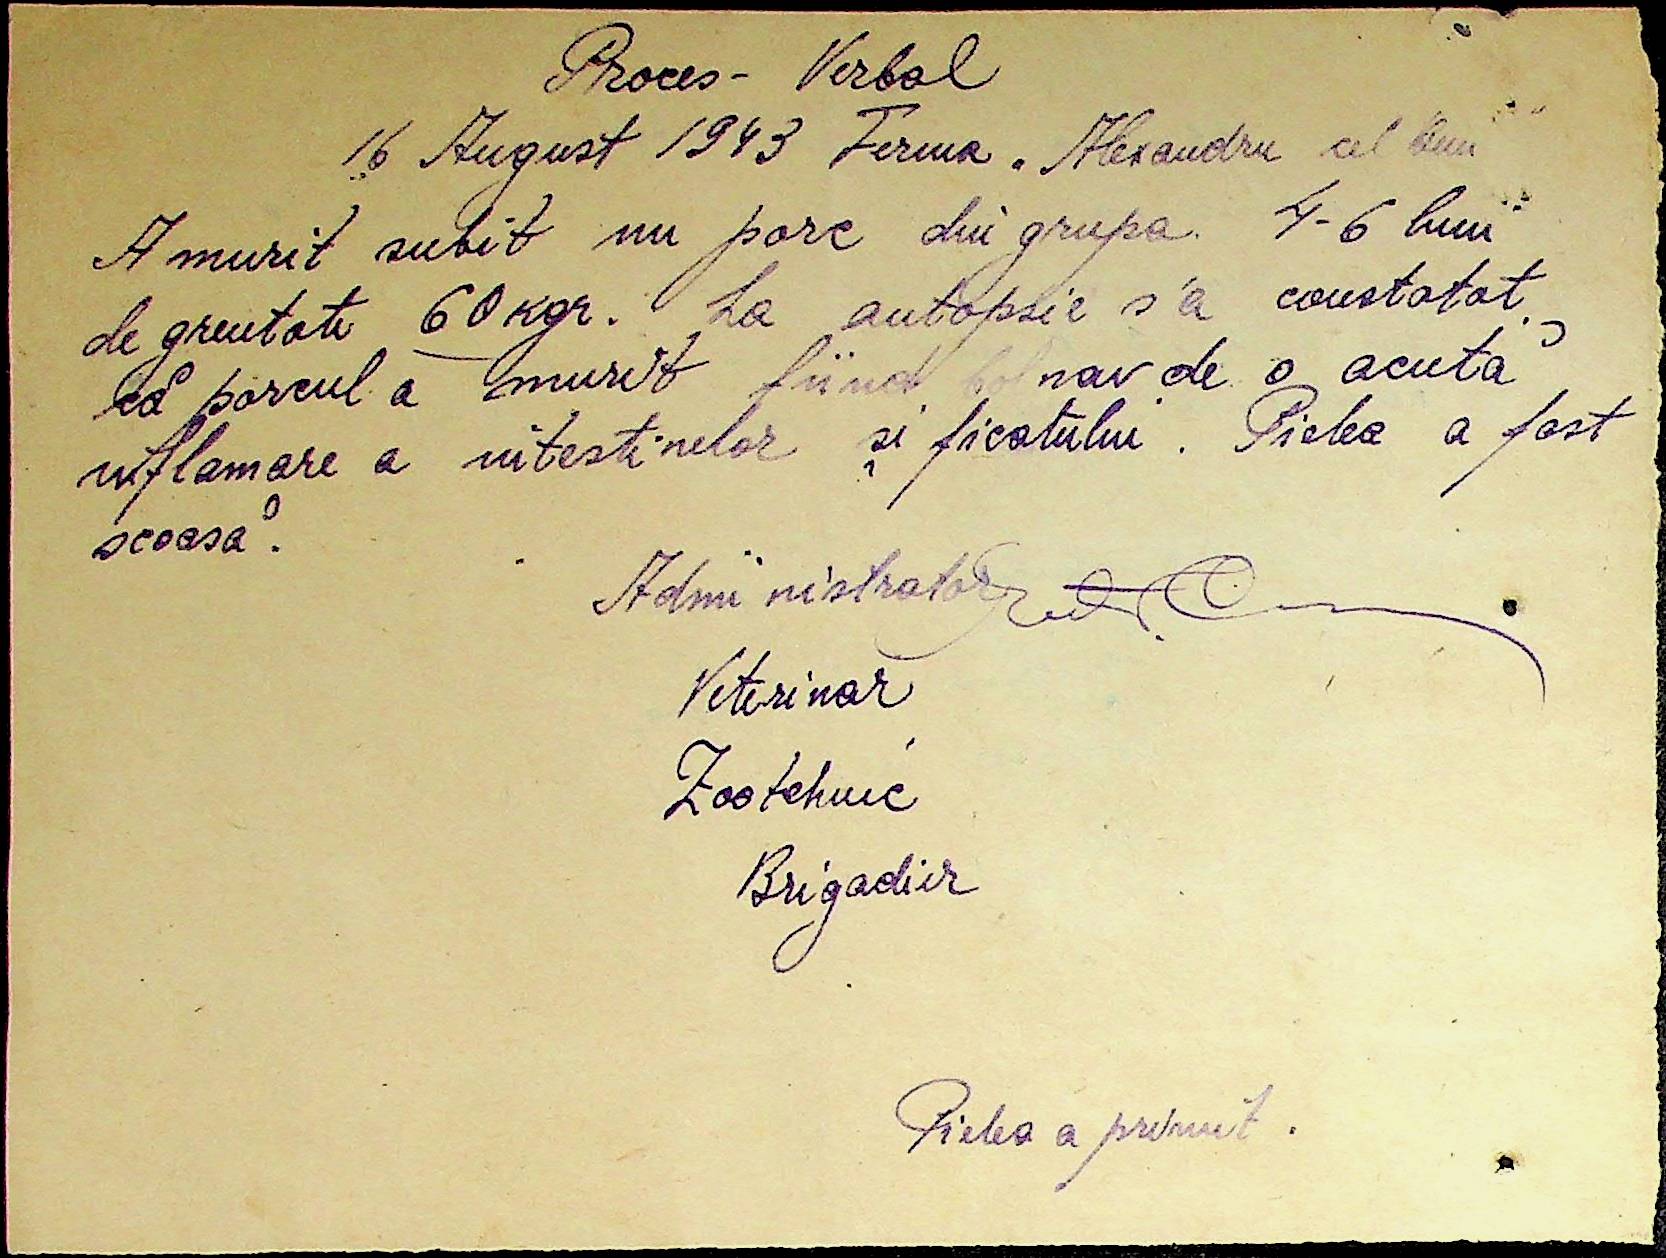 Proces-Verbal
16 August 1943 Ferma „Alexandru cel Bun"
A murit subit un porc din grupa 4-6 luni
de greutate 60 kgr. La autopsie s'a constatat,
că porcul a murit fiind bolnav de o acută
inflamare a intestinelor și ficatului. Pielea a fost
scoasă.
Administrator
Veterinar
Zootehnic
Brigadier
Pielea a primit.